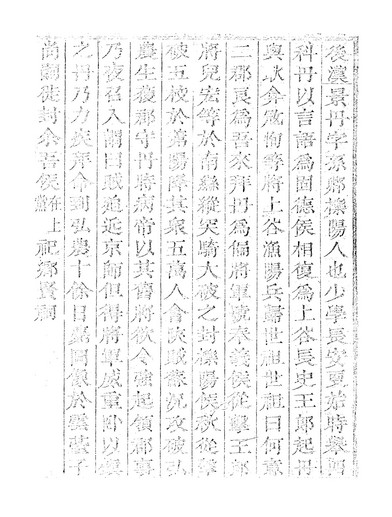 後漢景丹字孫卿櫟陽人也少學長安更始時舉四
科丹以言語為固德侯相復為上谷長史王郎起丹
與耿弇寇恂等將上谷漁陽兵歸世祖世祖曰何意
二郡良為吾來拜丹為偏將軍號奉義侯從擊王郎
將兒宏等於南䜌縱突騎大破之封櫟陽侯秋從擊
破五校於羛陽降其衆五萬人會陝賊蘇況攻破弘
農生獲郡守丹時病帝以其舊將欲令強起領郡事
乃夜召入謂曰賊迫近京師但得將軍威重臥以鎮
之丹乃力疾拜命到弘農十餘日薨圖像於雲臺子
尚嗣徙封余吾侯在上黨祀鄉賢祠